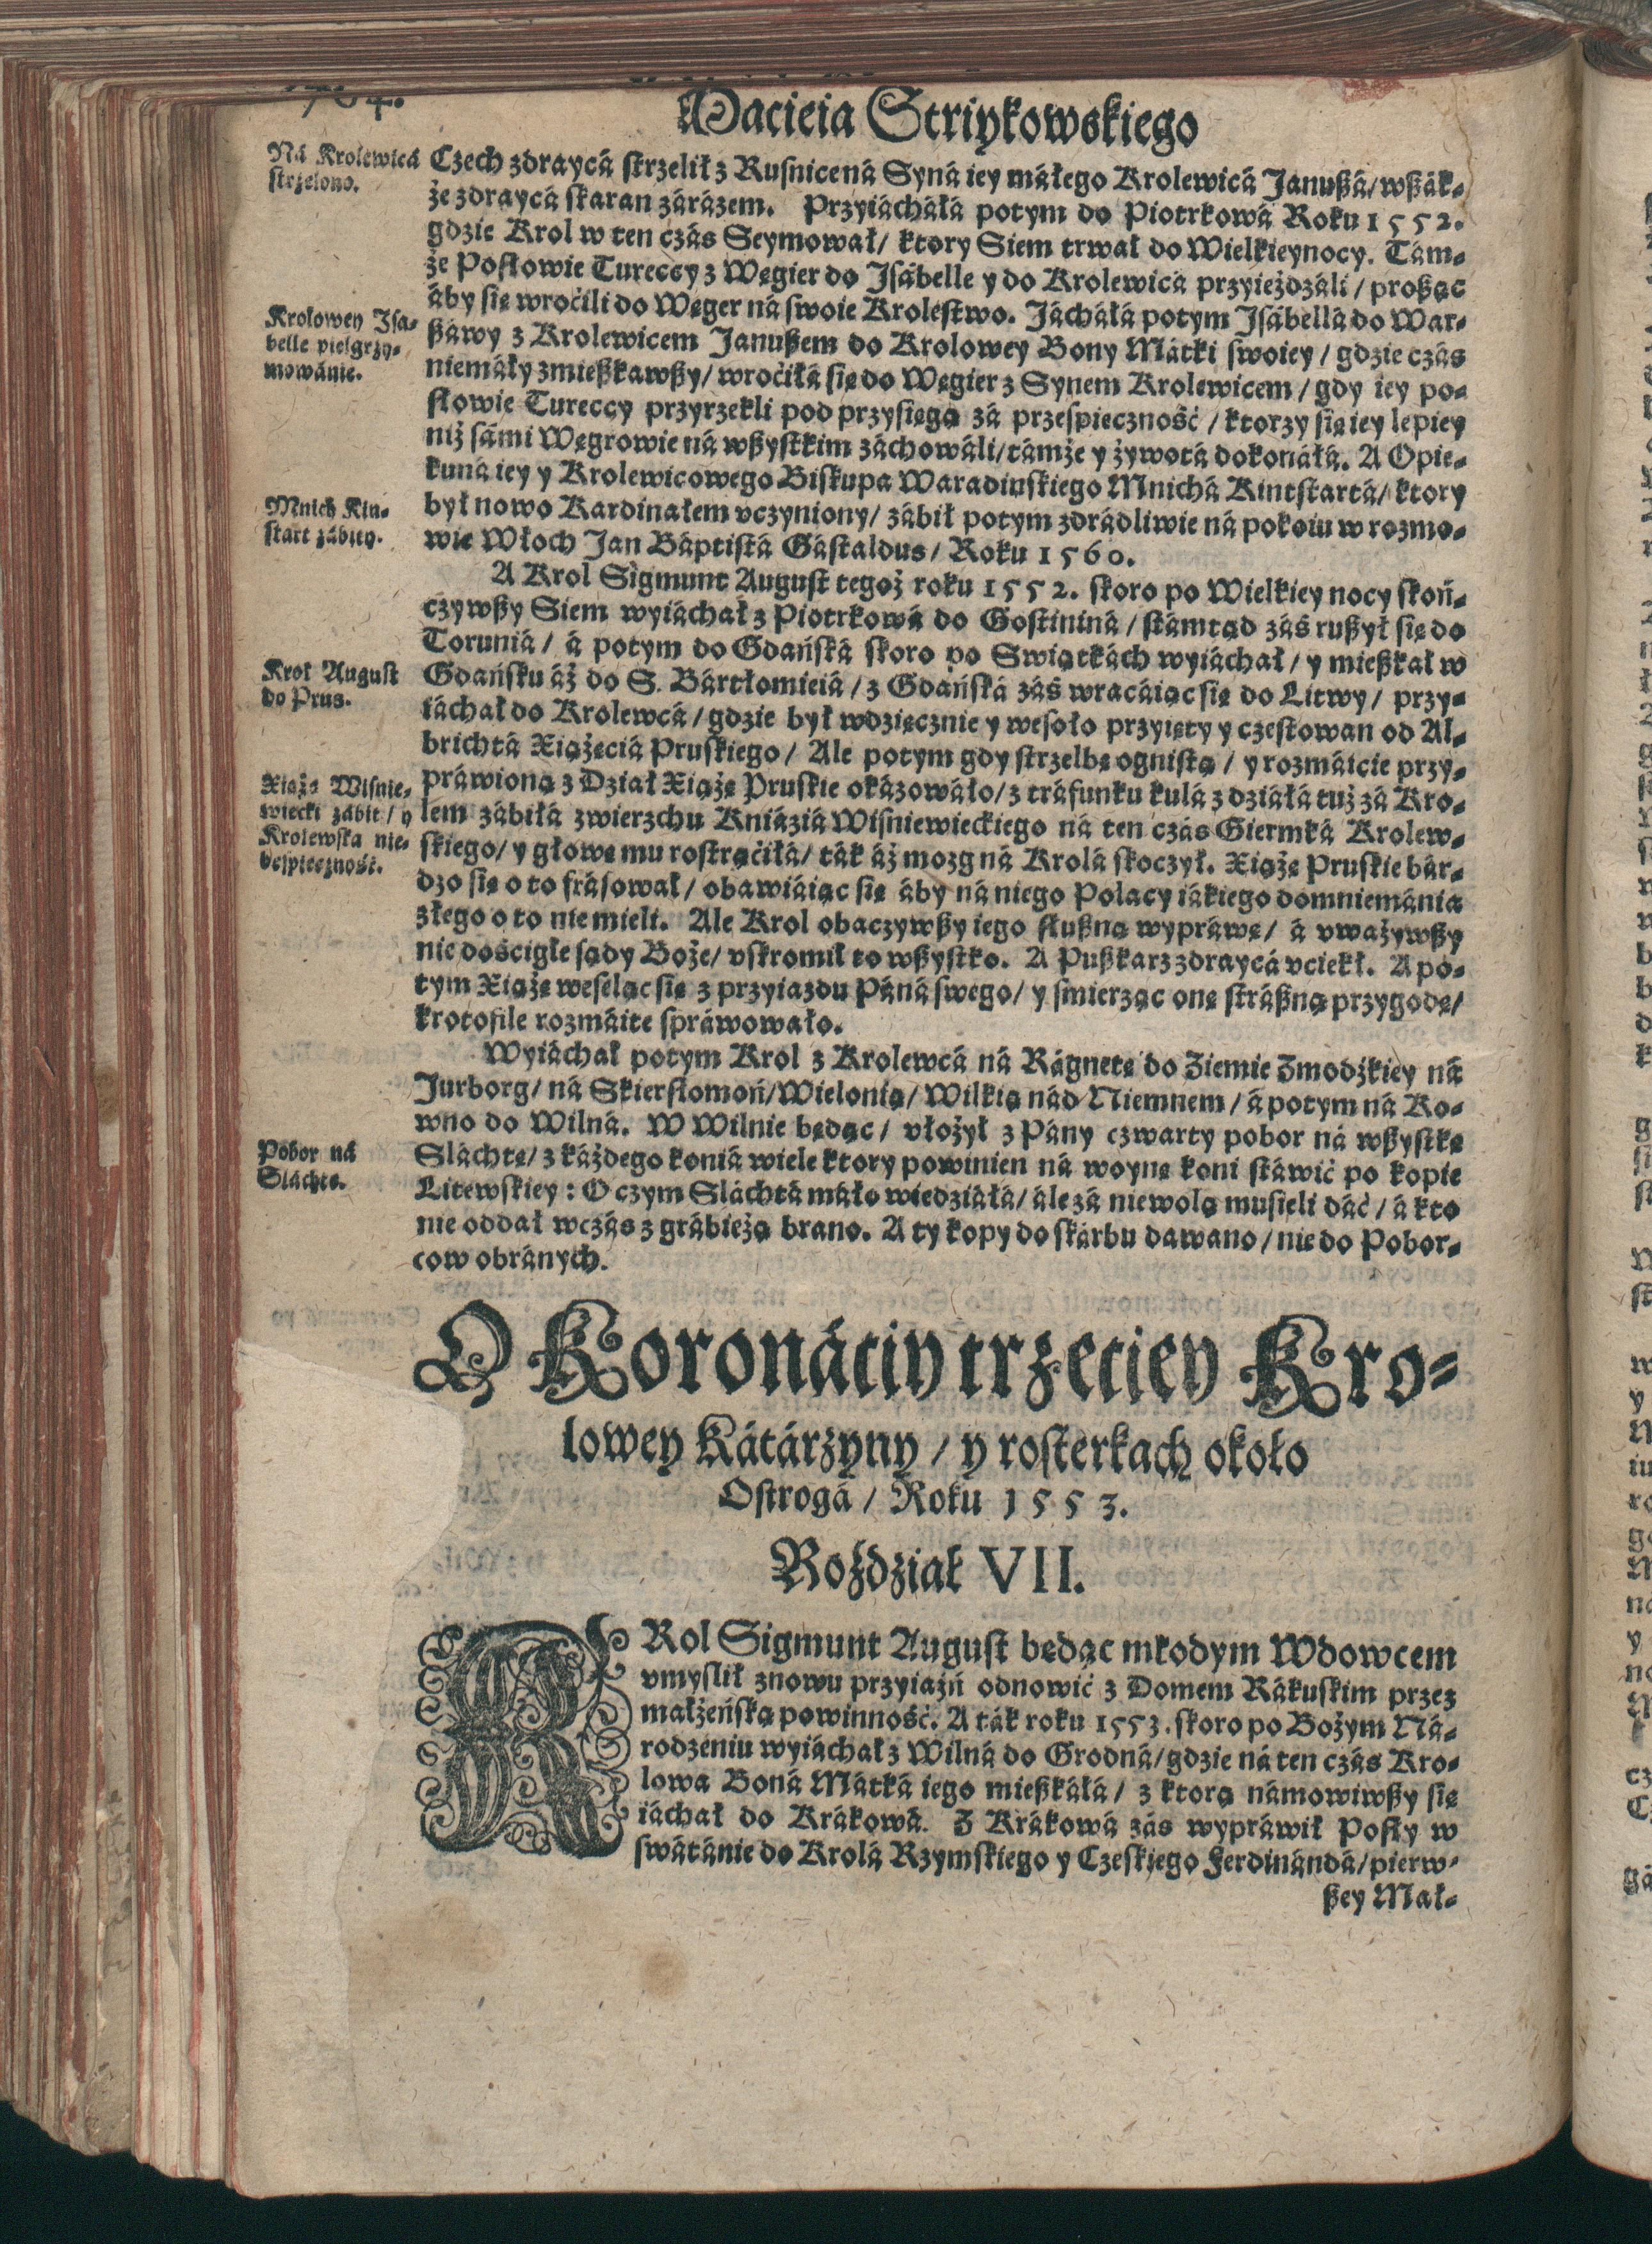 764.
Macieia Striykowskiego
Ná Krolewicá
strzelono.
Czech zdraycá strzelił z Rusnice ná Syná iey máłego Krolewicá Janußá/ wßák-
że zdraycá skaran zárázem. Przyiácháłá potym do Piotrkowá Roku 1552.
gdzie Krol w ten czás Seymował/ ktory Siem trwał do Wielkieynocy. Tám-
że Posłowie Tureccy z Węgier do Jsábelle y do Krolewicá przyieżdzáli/ proßąc
áby się wroćili do Węger ná swoie Krolestwo. Jácháłá potym Jsábellá do War-
ßáwy z Krolewicem Janußem do Krolowey Bony Mátki swoiey/ gdzie czás
niemáły zmießkawßy/ wroćiłá się do Węgier z Synem Krolewicem/ gdy iey po-
słowie Tureccy przyrzekli pod przysięgą zá przespieczność/ ktorzy się iey lepiey
niż sámi Węgrowie ná wßystkim záchowáli/ támże y żywotá dokonáłá. A Opie-
kuná iey y Krolewicowego Biskupa Waradinskiego Mnichá Kintstartá/ ktory
był nowo Kardinałem vczyniony/ zábił potym zdrádliwie ná pokoiu w rozmo-
wie Włoch Jan Báptistá Gástaldus/ Roku 1560.
Krolowey Isa-
belle pielgrzy-
mowánie.
Mnich Kin-
start zábity.
A Krol Sigmunt August tegoż roku 1552. skoro po Wielkiey nocy skoń-
czywßy Siem wyiáchał z Piotrkowá do Gostininá/ stámtąd záś rußył się do
Toruniá/ á potym do Gdańská skoro po Swiątkách wyiáchał/ y mießkał w
Gdańsku áż do S. Bártłomieiá/ z Gdańská záś wracáiąc się do Litwy/ przy-
iáchał do Krolewcá/ gdzie był wdzięcznie y wesoło przyięty y częstowan od Al-
brichtá Xiążęciá Pruskiego/ Ale potym gdy strzelbę ognistą/ y rozmáicie przy-
práwioną z Dział Xiążę Pruskie okázowáło/ z tráfunku kulá z działá tuż zá Kro-
lem zábiłá zwierzchu Kniáziá Wisniewieckiego ná ten czás Giermká Krolew-
skiego/ y głowę mu rostrąćiłá/ ták áż mozg ná Krolá skoczył. Xiążę Pruskie bár-
dzo się o to frásował/ obawiáiąc się áby ná niego Polacy iákiego domniemánia
złego o to nie mieli. Ale Krol obaczywßy iego słußną wypráwę/ á vważywßy
nie dościgłe sądy Boże/ vskromił to wßystko. A Pußkarz zdraycá vciekł. A po-
tym Xiążę weseląc się z przyiazdu Páná swego/ y smierząc onę stráßną przygodę/
krotofile rozmáite spráwowało.
Krol August
do Prus.
Xiążę Wisnie-
wiecki zábit/ y
Krolewska nie-
bespieczność.
Wyiáchał potym Krol z Krolewcá ná Rágnetę do Ziemie Zmodzkiey ná
Jurborg/ ná Skierstomoń/ Wielonią/ Wilkią nád Niemnem/ á potym ná Ko-
wno do Wilná. W Wilnie będąc/ vłożył z Pány czwarty pobor ná wßystkę
Sláchtę/ z káżdego koniá wiele ktory powinien ná woynę koni stáwić po kopie
Litewskiey: O czym Sláchtá máło wiedziáłá/ ále zá niewolą musieli dáć/ á kto
nie oddał wczás z grábieżą brano. A ty kopy do skárbu dawano/ nie do Pobor-
cow obránych.
Pobor ná
Sláchtę.
O Koronáciy trzeciey Kro-
lowey Kátárzyny/ y rosterkach około
Ostrogá/ Roku 1553.
Rozdział VII.
KRol Sigmunt August będąc młodym Wdowcem
vmyslił znowu przyiaźń odnowić z Domem Rákuskim przez
małżeńską powinność. A ták roku 1553. skoro po Bożym Ná-
rodzeniu wyiáchał z Wilná do Grodná/ gdzie ná ten czás Kro-
lowa Boná Mátká iego mießkáłá/ z ktorą námowiwßy się
iáchał do Krákowá. Z Krákowá zás wypráwił Posły w
swátánie do Krolá Rzymskiego y Czeskiego Ferdinándá/ pierw-
ßey Mał-